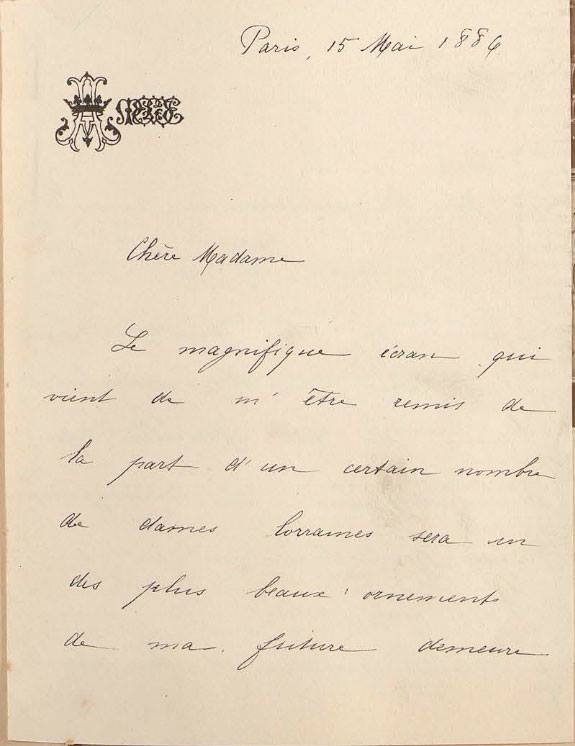 Paris, 15 Mai 1886
Chère Madame
Le magnifique écran qui
vient de m'être remis de
la part d'un certain nombre
de dames lorraines sera un
des plus beaux ornements
de ma future demeure